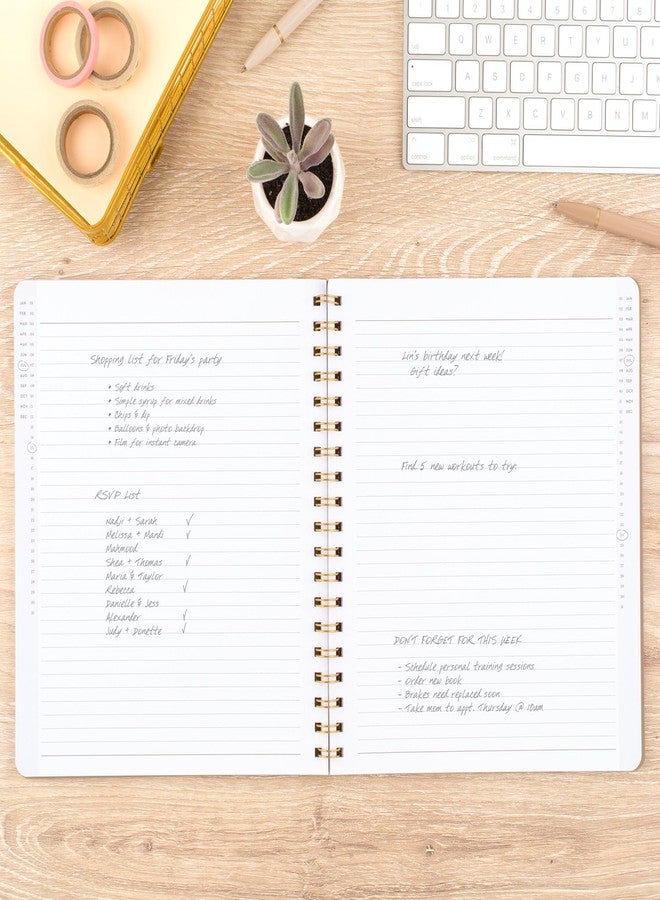 1 2 3 4 5 6 7 8
tab Q W E R T Y U I
caps lock A S D F G H J
shift Z X C V B N M
control option command
JAN
FEB
MAR
APR
MAY
JUN
JUL
AUG
SEP
OCT
NOV
DEC
Shopping list for Friday's party
• Soft drinks
• Simple syrup for mixed drinks
• Chips & dip
• Balloons & photo backdrop
• Film for instant camera
RSVP List
Nadji + Sarah ✓
Melissa + Mandi ✓
Mahmood
Shea + Thomas ✓
Maria & Taylor
Rebecca ✓
Danielle & Jess
Alexander ✓
Judy + Donette ✓
Lin's birthday next week!
Gift ideas?
Find 5 new workouts to try:
DON'T FORGET FOR THIS WEEK
- Schedule personal training sessions
- Order new book
- Brakes need replaced soon
- Take mom to appt. Thursday @ 10am
JAN
FEB
MAR
APR
MAY
JUN
JUL
AUG
SEP
OCT
NOV
DEC